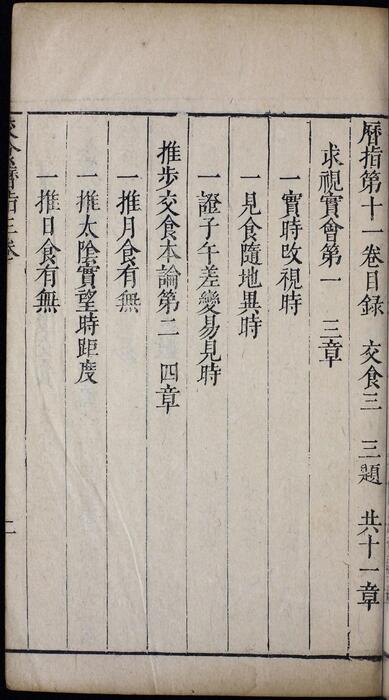 曆指第十一卷目録　交食三　三題　共十一章
求視實會第一　三章
一實時改視時
一見食隨地異時
一證子午差變易見時
推歩交食本論第二　四章
一推月食有無
一推太陰實望時距度
一推日食有無